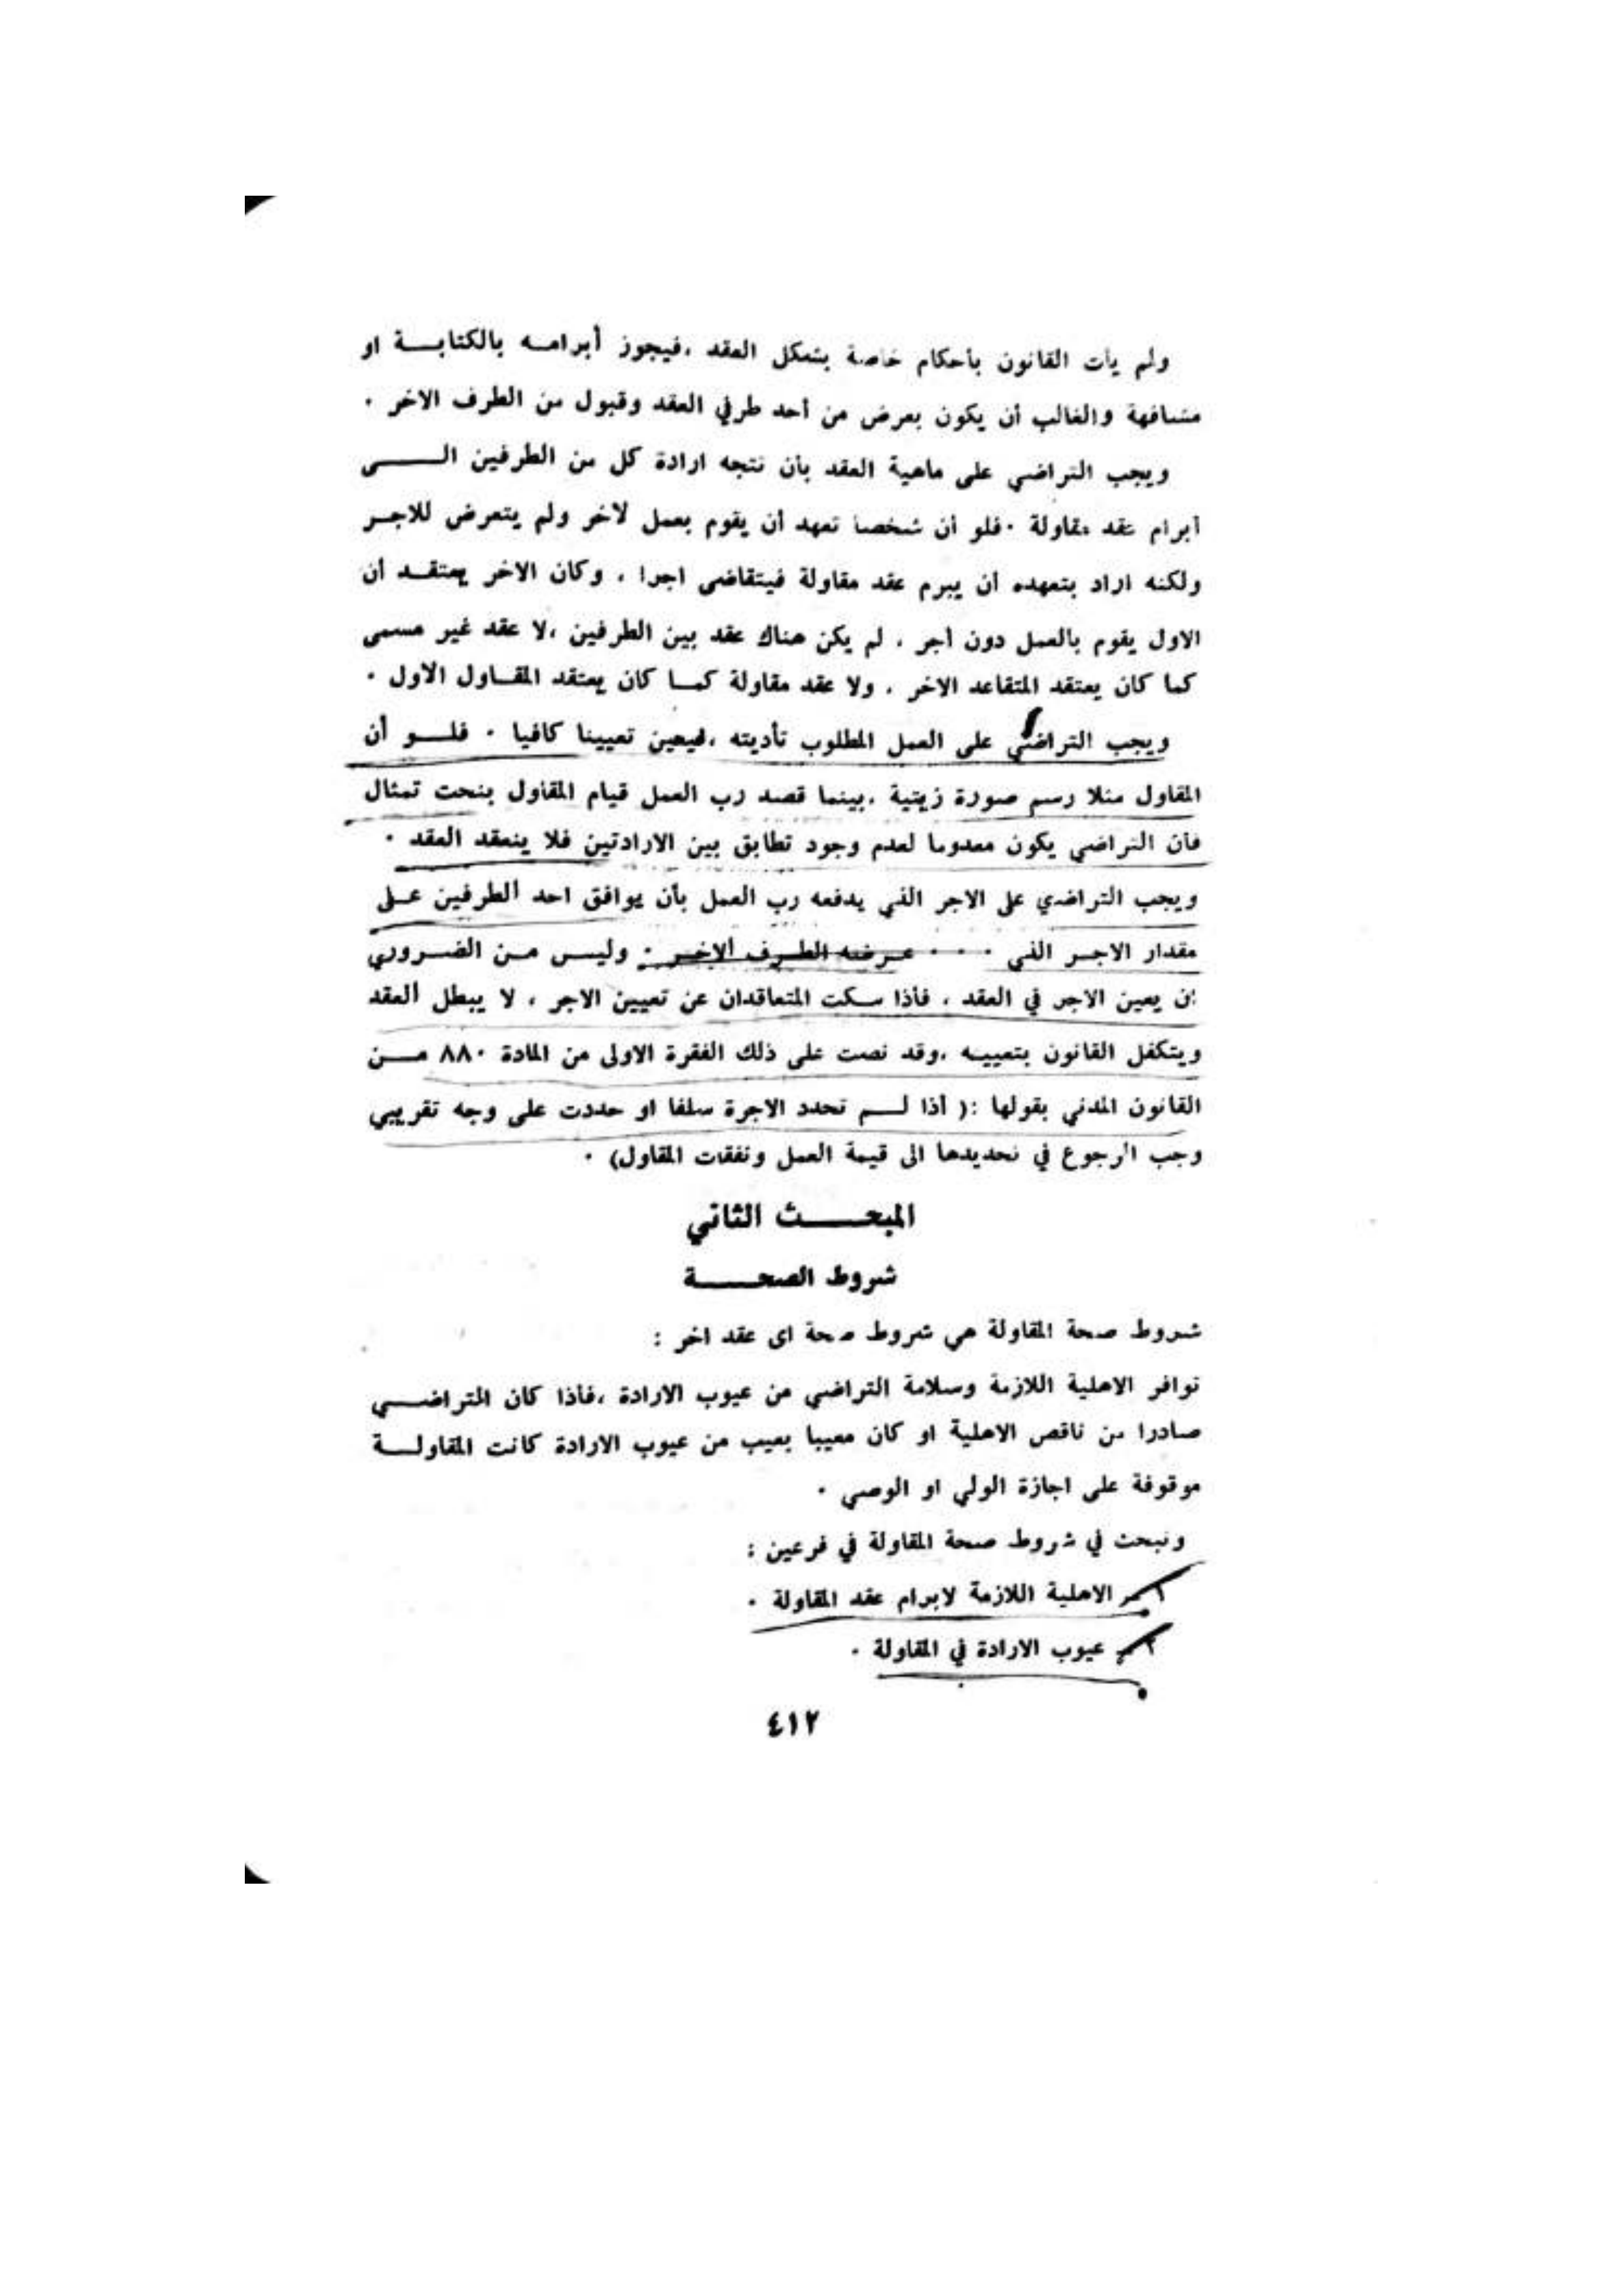 ولم يأت القانون بأحكام خاصة بشكل العقد ،فيجوز أبرامه بالكتابة او
مشافهة والغالب أن يكون بعرض من أحد طرفي العقد وقبول من الطرف الاخر .
ويجب التراضي على ماهية العقد بأن تتجه ارادة كل من الطرفين الى
أبرام عقد مقاولة .فلو أن شخصا تعهد أن يقوم بعمل لاخر ولم يتعرض للاجر
ولكنه اراد بتعهده ان يبرم عقد مقاولة فيتقاضى اجرا ، وكان الاخر يعتقد ان
الاول يقوم بالعمل دون أجر ، لم يكن هناك عقد بين الطرفين ،لا عقد غير مسمى
كما كان يعتقد المتقاعد الاخر ، ولا عقد مقاولة كما كان يعتقد المقاول الاول .
ويجب التراضي على العمل المطلوب تأديته ،فيعين تعيينا كافيا . فلو أن
المقاول مثلا رسم صورة زيتية ،بينما قصد رب العمل قيام المقاول بنحت تمثال
فأن التراضي يكون معدوما لعدم وجود تطابق بين الارادتين فلا ينعقد العقد .
ويجب التراضي على الاجر الذي يدفعه رب العمل بأن يوافق احد الطرفين على
مقدار الاجر الذي . . . عرضه الطرف الاخر . وليس من الضروري
ان يعين الاجر في العقد ، فأذا سكت المتعاقدان عن تعيين الاجر ، لا يبطل العقد
ويتكفل القانون بتعييه ،وقد نصت على ذلك الفقرة الاولى من المادة ٨٨٠ من
القانون المدني بقولها :( أذا لم تحدد الاجرة سلفا او حددت على وجه تقريبي
وجب الرجوع في تحديدها الى قيمة العمل ونفقات المقاول) .
المبحث الثاني
شروط الصحة
شروط صحة المقاولة هي شروط صحة اى عقد اخر :
توافر الاهلية اللازمة وسلامة التراضي من عيوب الارادة ،فأذا كان التراضي
صادرا من ناقص الاهلية او كان معيبا بعيب من عيوب الارادة كانت المقاولة
موقوفة على اجازة الولي او الوصي .
ونبحث في شروط صحة المقاولة في فرعين :
١ـ الاهلية اللازمة لابرام عقد المقاولة .
٢ـ عيوب الارادة في المقاولة .
٤١٢